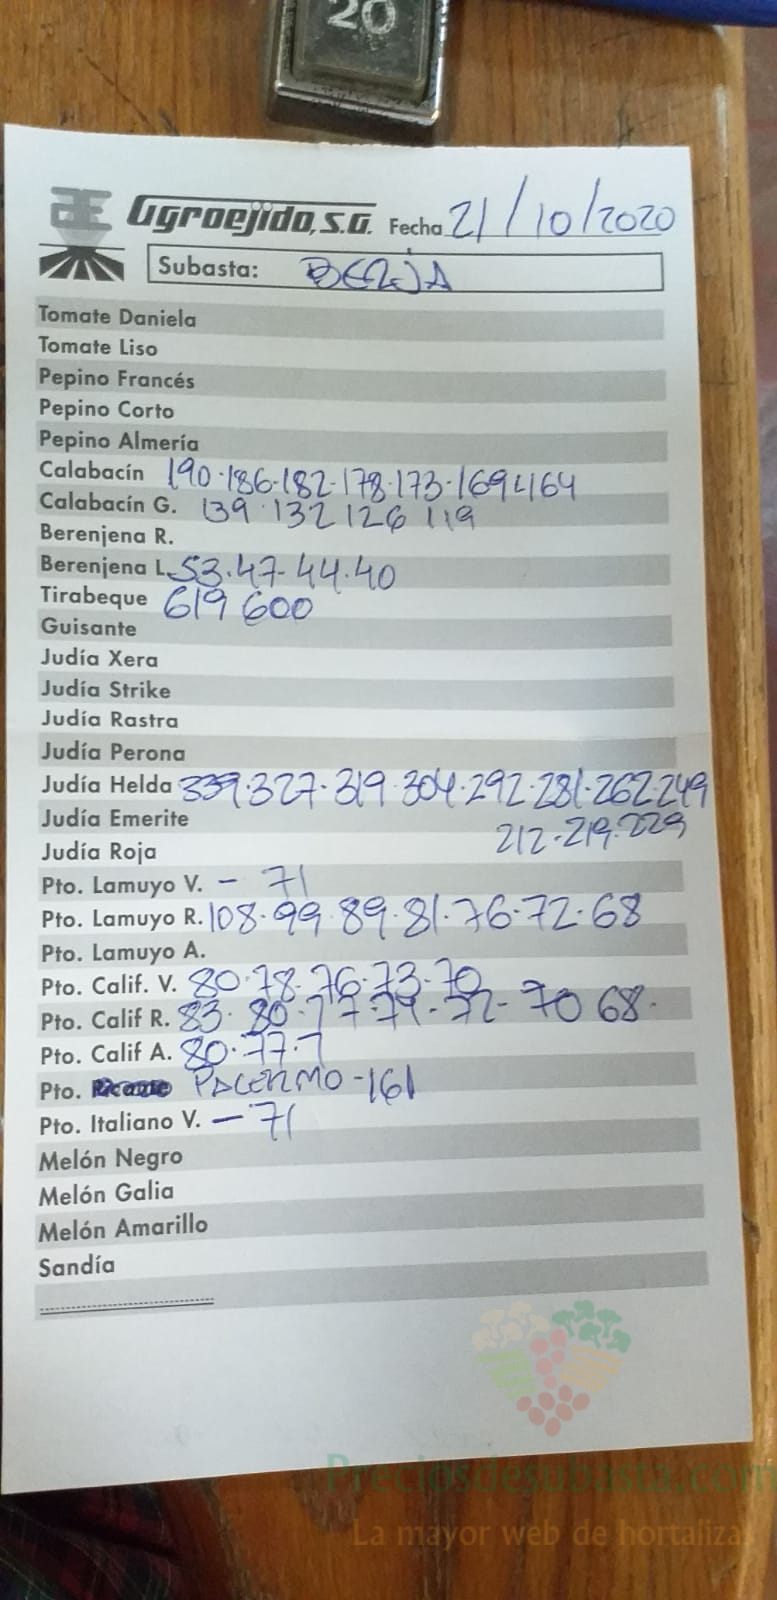 20
Agroejido, S.A. Fecha 21/10/2020
Subasta: BERJA
Tomate Daniela
Tomate Liso
Pepino Francés
Pepino Corto
Pepino Almería
Calabacín 190·186·182·178·173·169·164
Calabacín G. 139·132 126 119
Berenjena R.
Berenjena L. 53·47·44·40
Tirabeque 619 600
Guisante
Judía Xera
Judía Strike
Judía Rastra
Judía Perona
Judía Helda 339·327·319·304·292·281·262·249
Judía Emerite 212·219·229
Judía Roja
Pto. Lamuyo V. - 71
Pto. Lamuyo R. 108·99·89·81·76·72·68
Pto. Lamuyo A.
Pto. Calif. V. 80·78·76·73·70
Pto. Calif R. 83·80·77·74·72·70 68·
Pto. Calif A. 80·77·7
Pto. PALERMO - 161
Pto. Italiano V. - 71
Melón Negro
Melón Galia
Melón Amarillo
Sandía
Preciosdesubasta.com
La mayor web de hortalizas